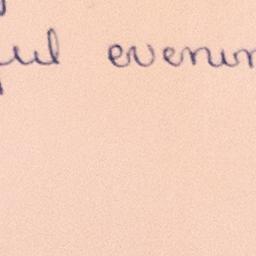 ful evenin